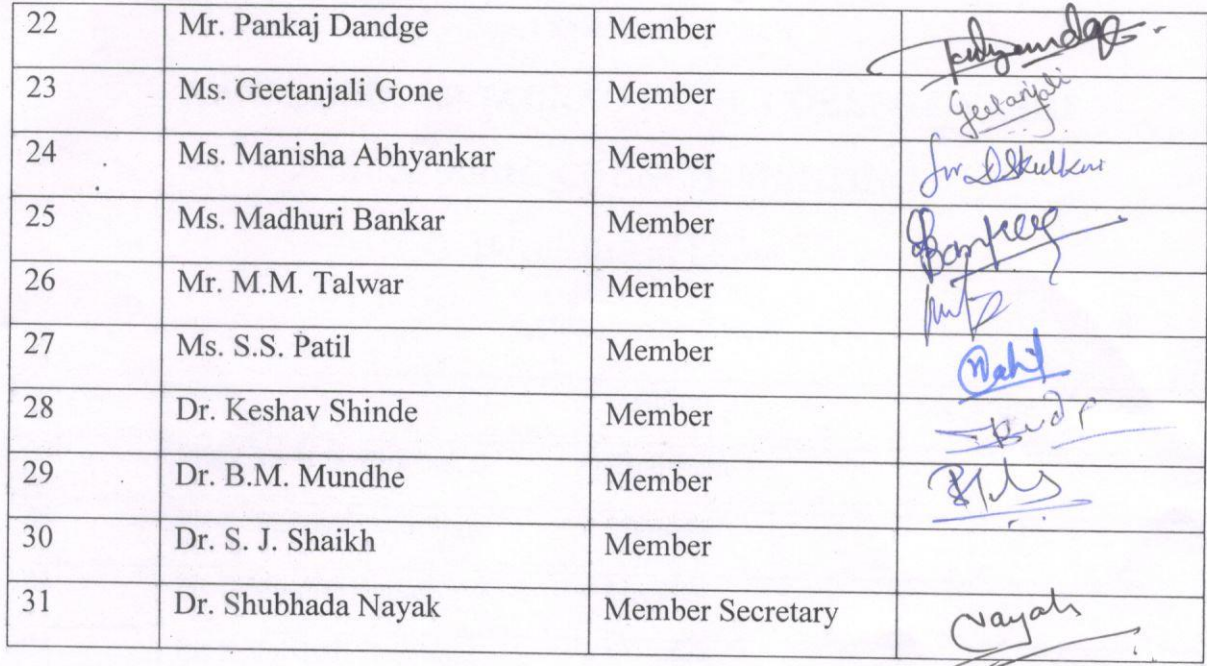 22 Mr. Pankaj Dandge Member
23 Ms. Geetanjali Gone Member Geetanjali
24 Ms. Manisha Abhyankar Member for DSkulkarni
25 Ms. Madhuri Bankar Member
26 Mr. M.M. Talwar Member
27 Ms. S.S. Patil Member
28 Dr. Keshav Shinde Member
29 Dr. B.M. Mundhe Member
30 Dr. S. J. Shaikh Member
31 Dr. Shubhada Nayak Member Secretary Nayak